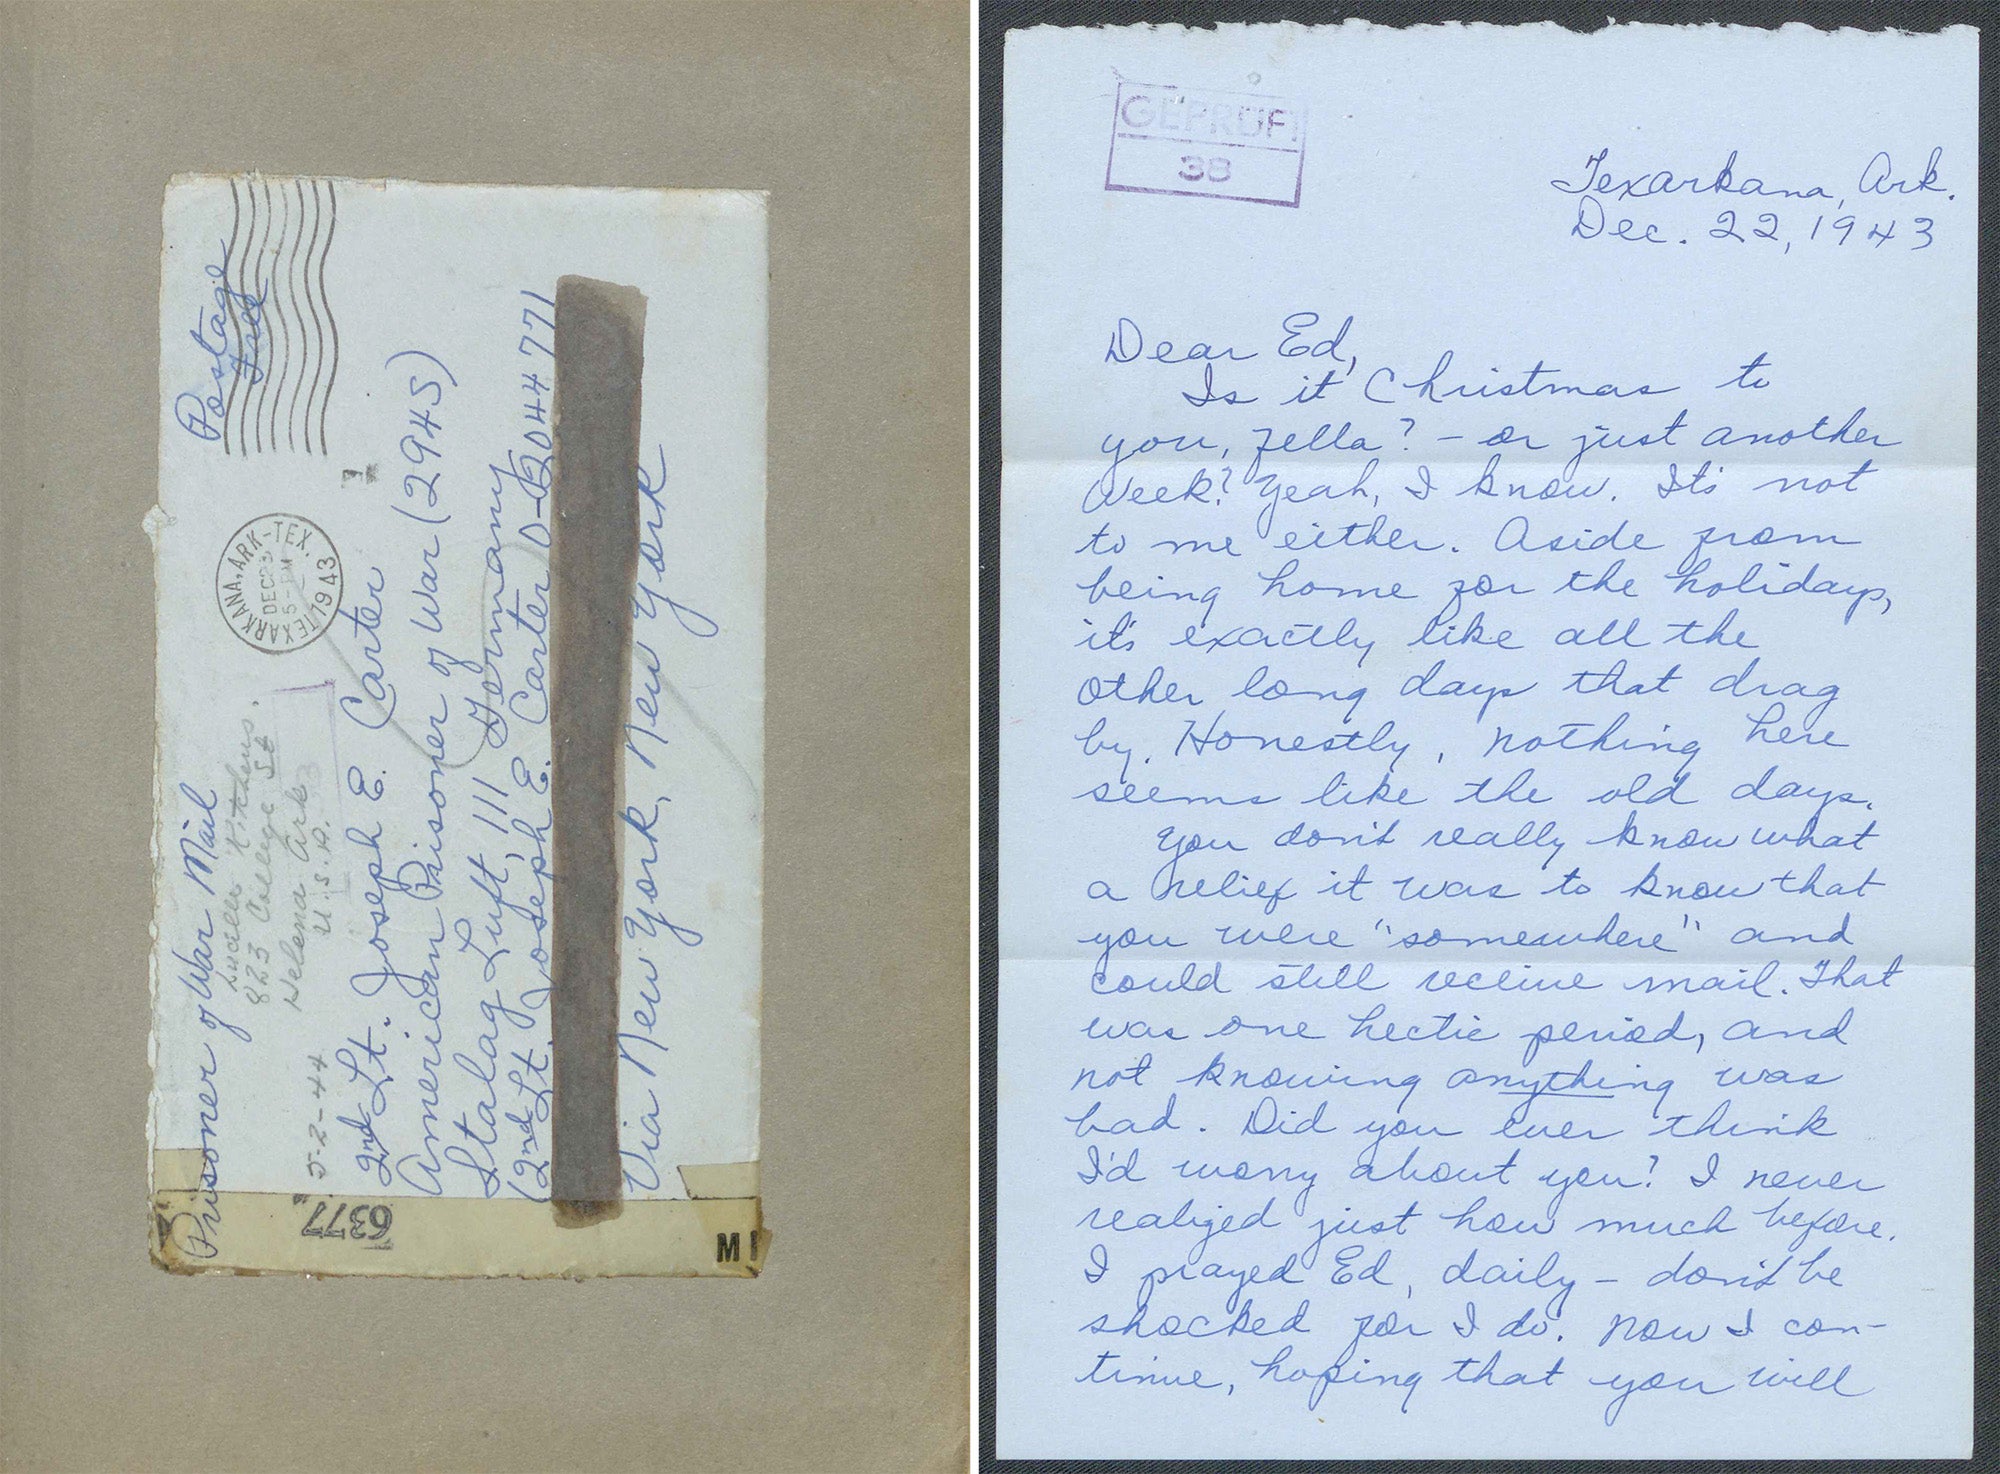 Prisoner of War Mail
Postage
Free
Lucille Kitchens.
823 College St
Helena Ark
U.S.A.
TEXARKANA, ARK-TEX.
DEC 23
5-PM
1943
5-2-44
2nd Lt. Joseph E. Carter
American Prisoner of War (2945)
Stalag Luft, III Germany
(2nd Lt. Joseph E. Carter O-2044771
Via New York, New York
6377
GEPRÜFT
38
Texarkana, Ark.
Dec. 22, 1943
Dear Ed,
Is it Christmas to
you, fella? - or just another
week? Yeah, I know. It's not
to me either. Aside from
being home for the holidays,
it's exactly like all the
other long days that drag
by. Honestly, nothing here
seems like the old days.
You don't really know what
a relief it was to know that
you were "somewhere" and
could still receive mail. That
was one hectic period, and
not knowing anything was
bad. Did you ever think
I'd worry about you? I never
realized just how much before.
I prayed Ed, daily - don't be
shocked for I do. Now I con-
tinue, hoping that you will